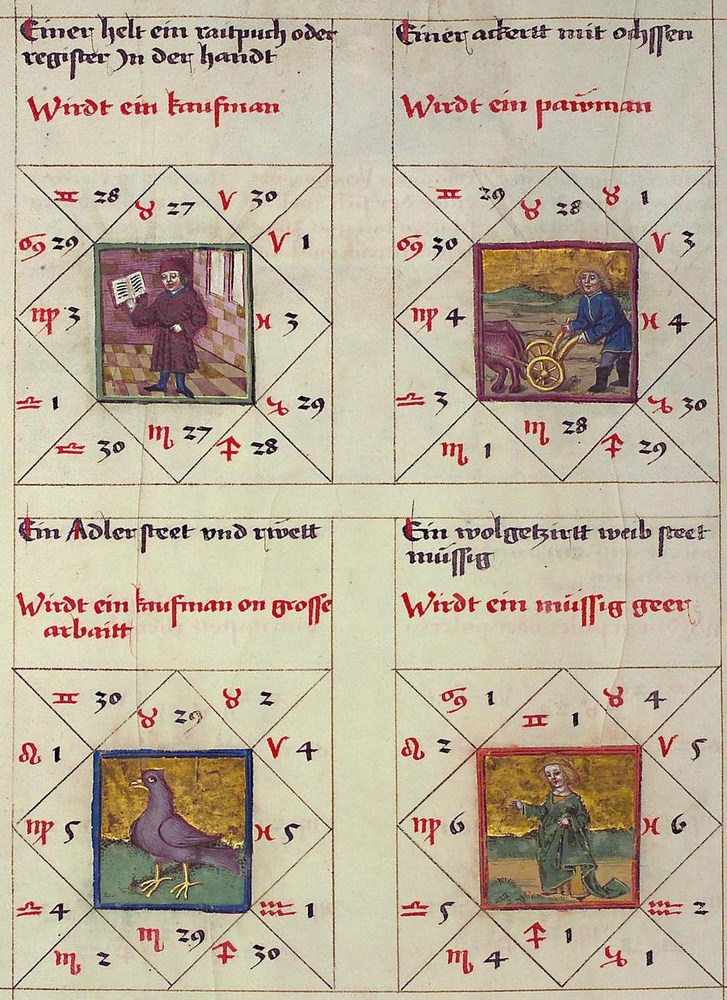 Einer helt ein raitpuch oder
register Jn der handt
Wirdt ein kaufman
♊ 28 ♉ 27 V 30
♋ 29 V 1
♍ 3 ♓ 3
♎ 1 ♑ 29
♎ 30 ♏ 27 ♐ 28
Einer ackertt mit ochssen
Wirdt ein paẅman
♊ 29 ♉ 28 ♉ 1
♋ 30 V 3
♍ 4 ♓ 4
♎ 3 ♑ 30
♏ 1 ♏ 28 ♐ 29
Ein Adler steet vnd rwett
Wirdt ein kaufman on grosse
arbaitt
♊ 30 ♉ 29 ♉ 2
♌ 1 V 4
♍ 5 ♓ 5
♎ 4 ♒ 1
♏ 2 ♏ 29 ♐ 30
Ein wolgetzirtt weib steet
müssig
Wirdt ein müssig geer
♋ 1 ♊ 1 ♉ 4
♌ 2 V 5
♍ 6 ♓ 6
♎ 5 ♒ 2
♏ 4 ♐ 1 ♑ 1